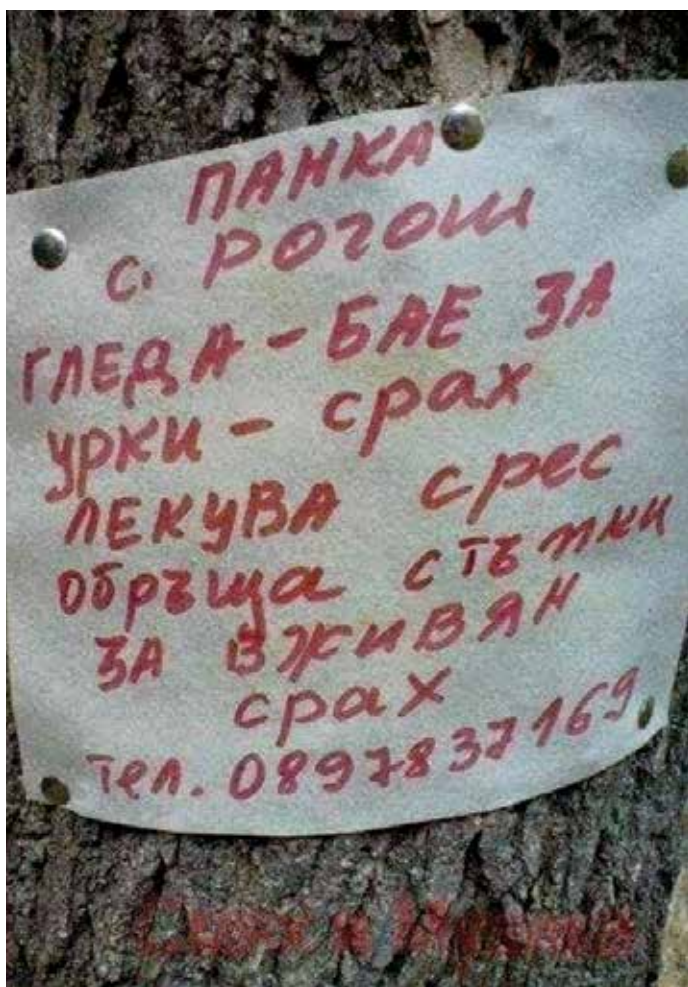 ПАНКА
с. Рогош
ГЛЕДА - БАЕ ЗА
УРКИ - срах
ЛЕКУВА срес
обръща стъпки
ЗА ВЖИВЯН
срах
Тел. 0897837169